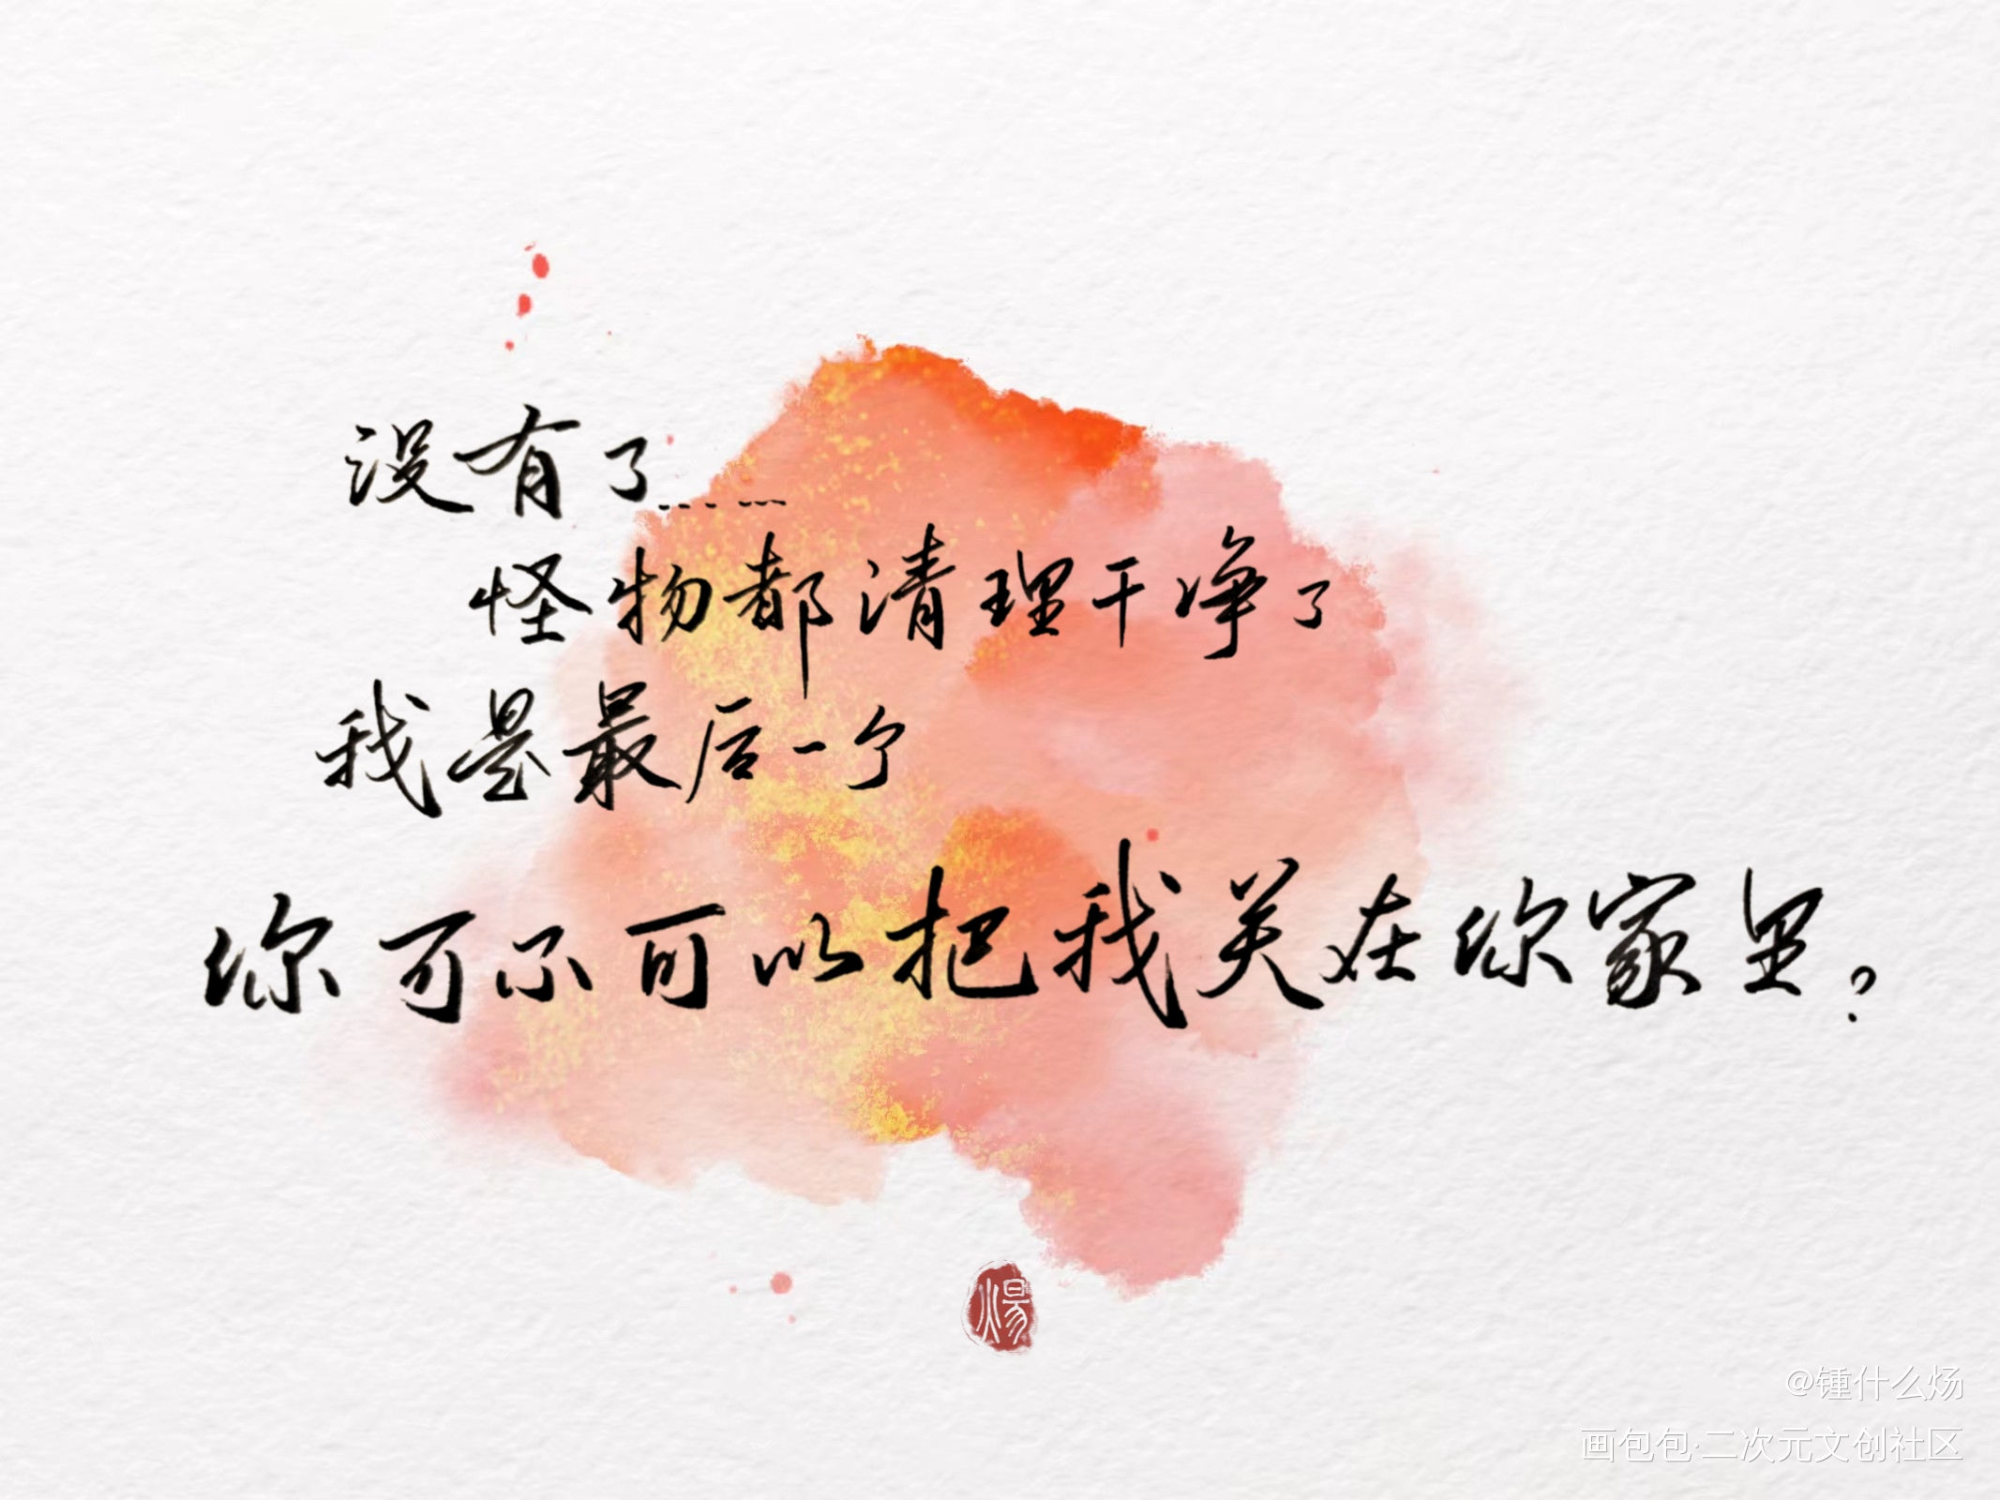 没有了……
怪物都清理干净了
我是最后一个
你可不可以把我关在你家里?
炀
@锺什么炀
画包包·二次元文创社区